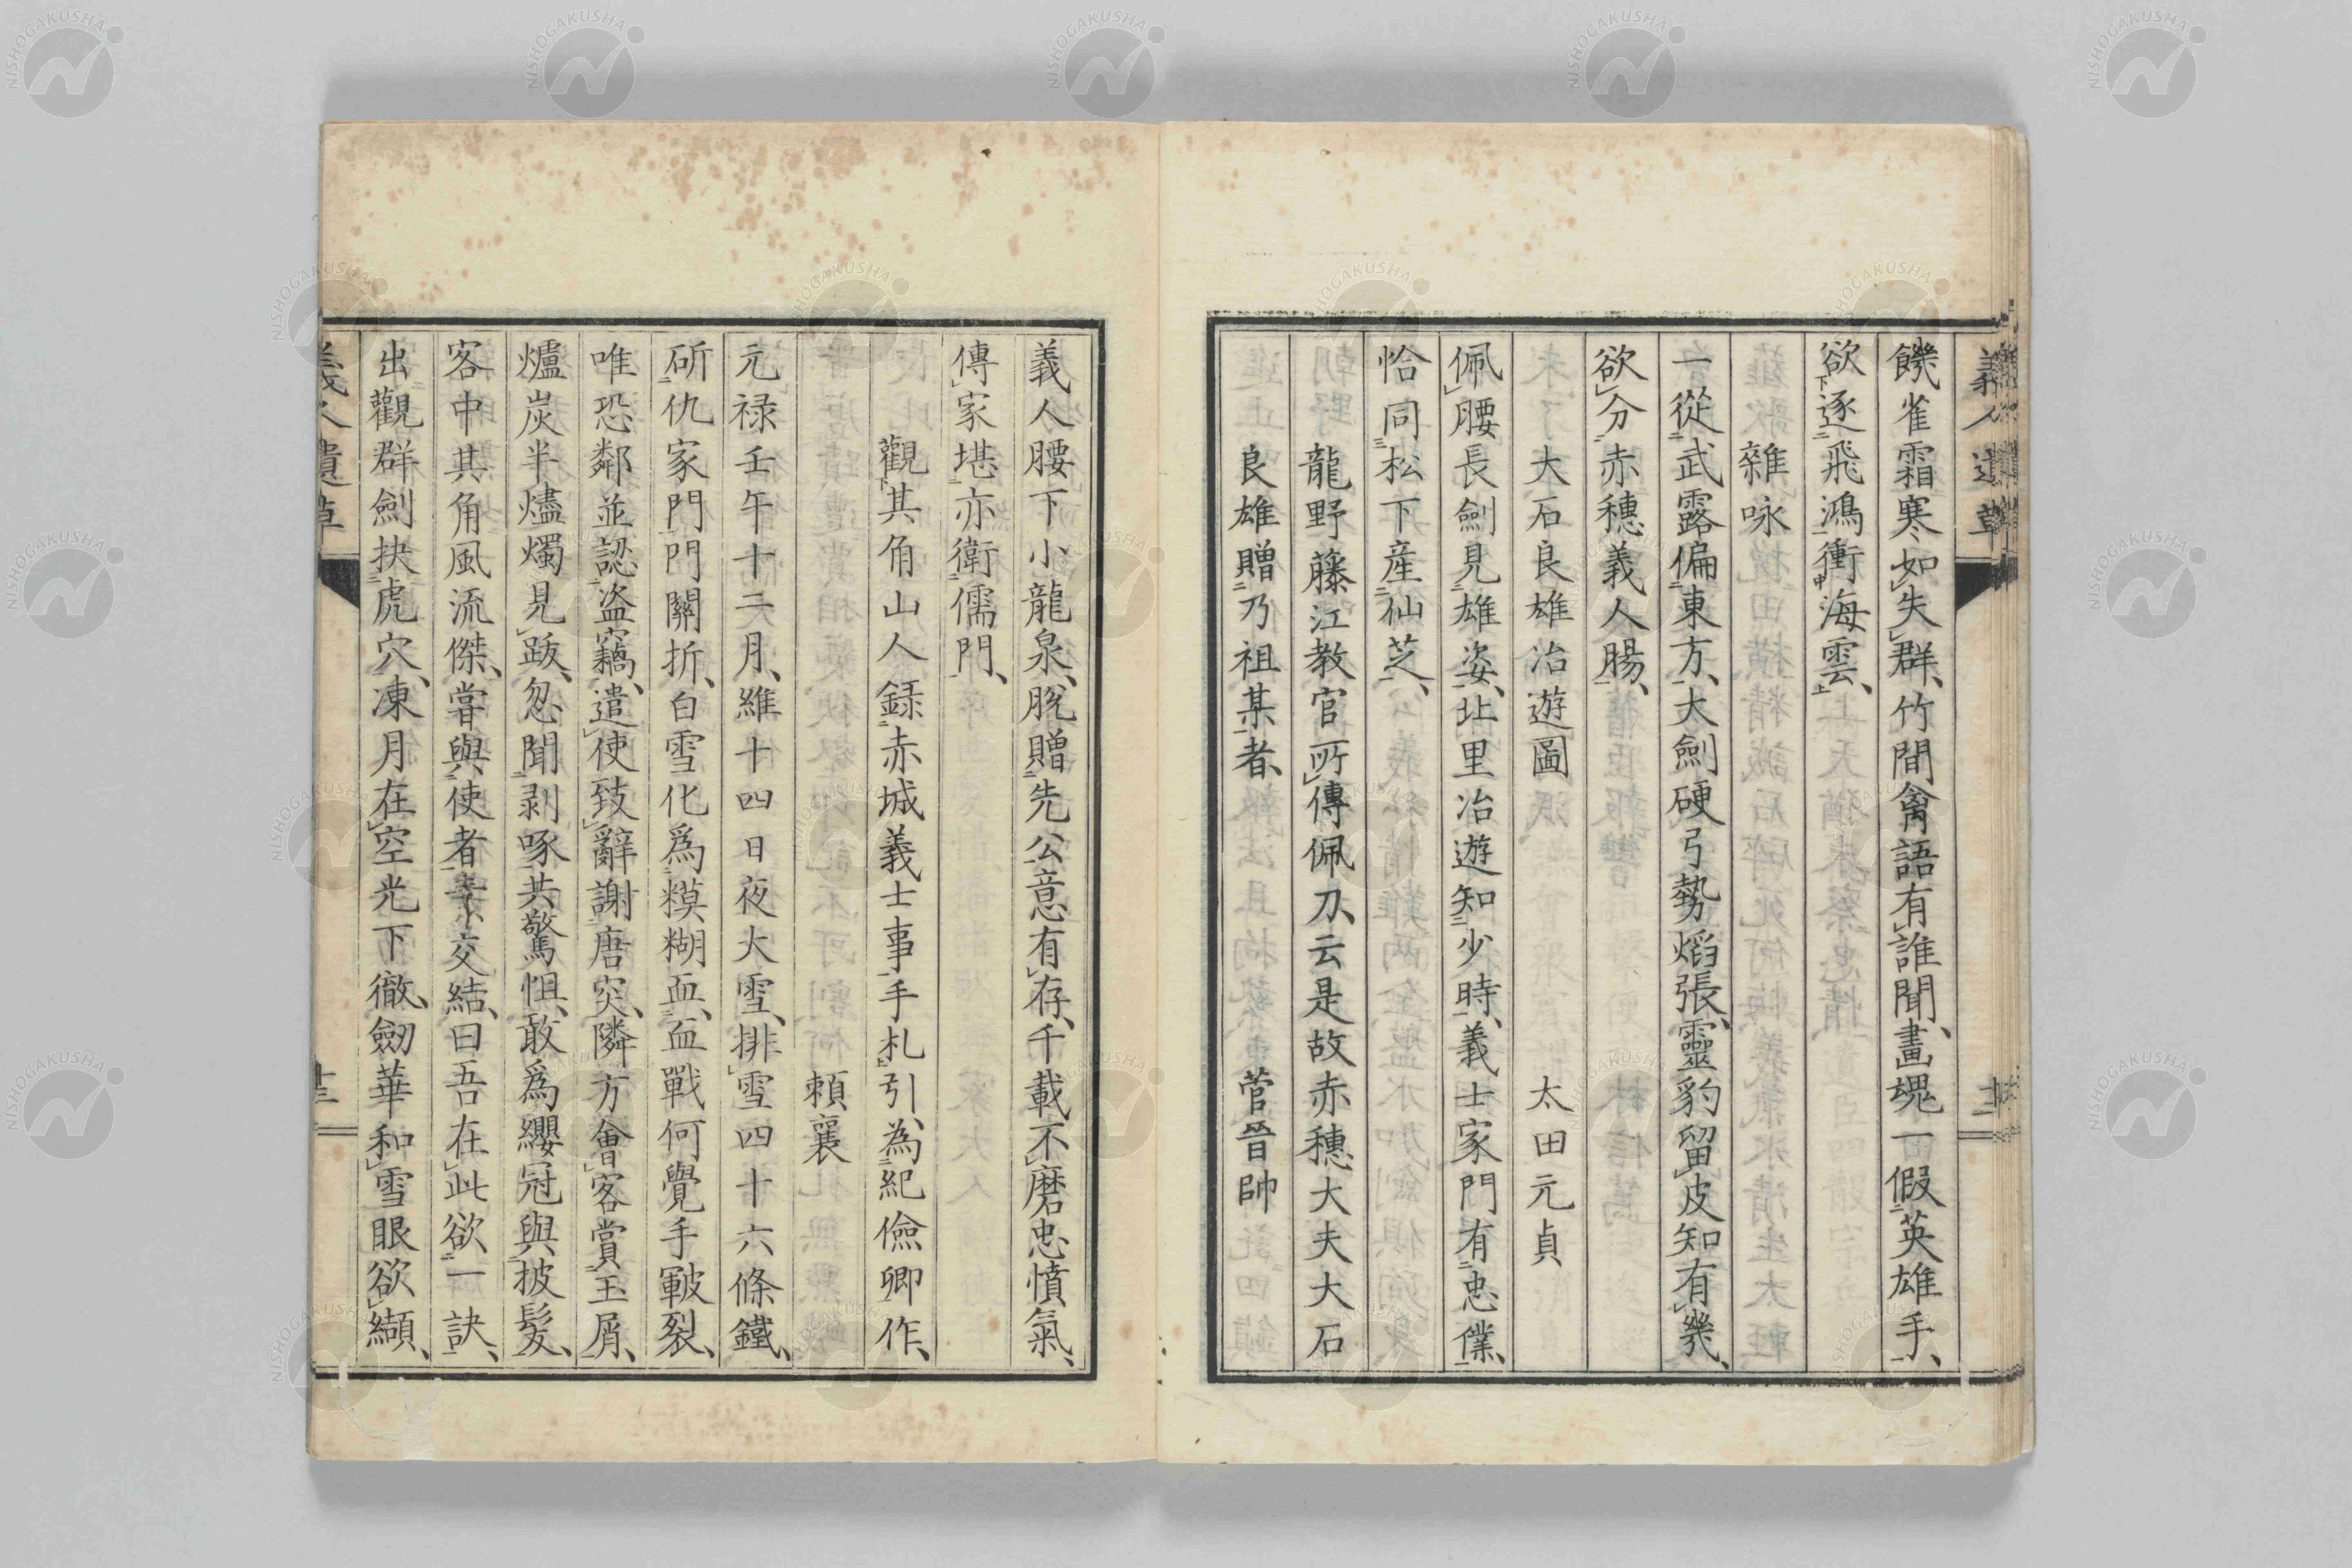 義人遺草
饑雀霜寒如失群、竹間禽語有誰聞、畫塊一假英雄手、
欲逐飛鴻衝海雲、
雜咏
一從武露偏東方、大劍硬弓勢熖張、靈豹留皮知有幾、
欲分赤穗義人腸、
大石良雄冶遊圖 太田元貞
佩腰長劍見雄姿、北里冶遊知少時、義士家門有忠僕、
恰同松下産仙芝、
龍野藤江教官所傳佩刀、云是故赤穗大夫大石
良雄贈乃祖某者、 菅晉帥
義人腰下小龍泉、脫贈先公意有存、千載不磨忠憤氣、
傳家堪亦衛儒門、
觀其角山人録赤城義士事手札引、為紀儉卿作、
賴襄
元禄壬午十二月、維十四日夜大雪、排雪四十六條鐵、
斫仇家門門關折、白雪化爲糢糊血、血戰何覺手皸裂、
唯恐鄰並認盜竊、遣使致辭謝唐突、隣方會客賞玉屑、
爐炭半燼燭見跋、忽聞剥啄共驚怛、敢爲纓冠與披髮、
客中其角風流傑、甞與使者幸交結、曰吾在此欲一訣、
出觀群劍抉虎穴、凍月在空光下徹、劒華和雪眼欲纈、
義人遺草
十三